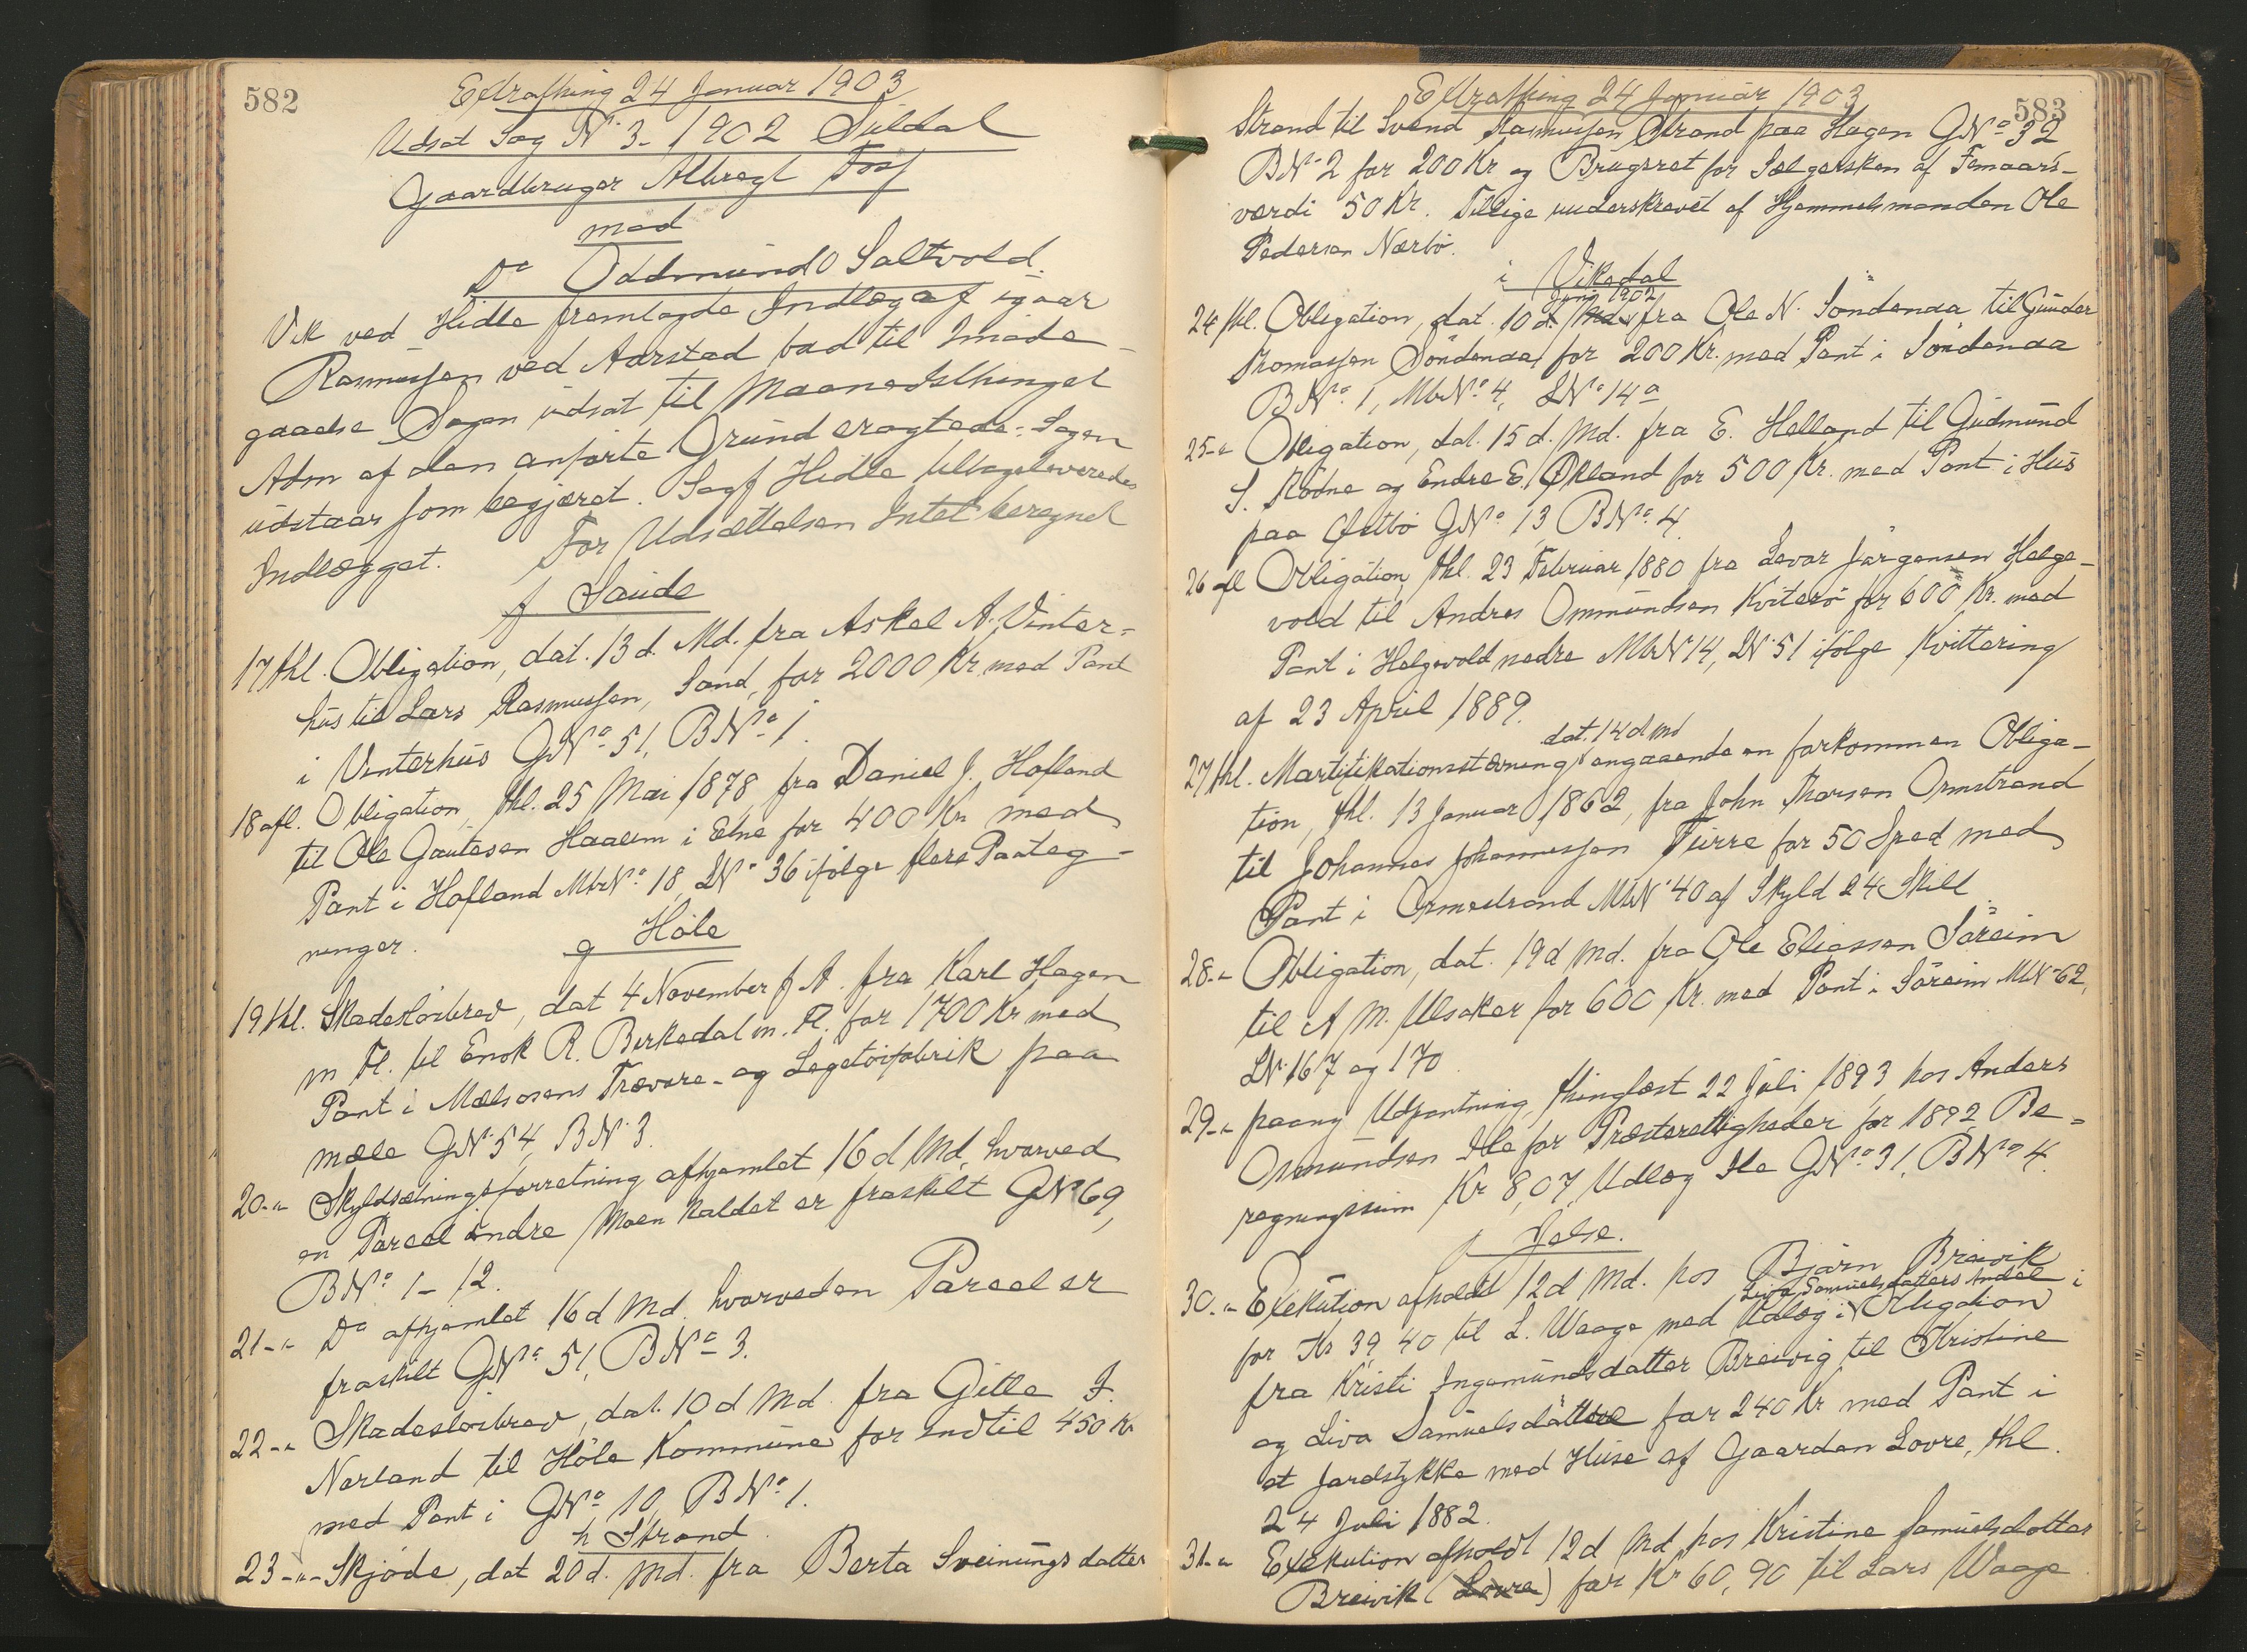 582
Extrathing 24 Januar 1903
Udsat Sag N. 3 - 1902 Suldal
Gaardbruger Albregt Fos
mod
Do Oddmund O Saltvold.
Vik ved Hidle fremlagde Indlæg af igaar
Rasmussen ved Aarstad bad til Imøde-
gaaelse Sagen udsat til Maanedsthinget
Adm af den anførte Grund eragtede: Sagen
udstaar som begjæret. Sagf Hidle tilbageleveredes
Indlægget. For Udsættelsen Intet beregnet
f Saude
17 thl. Obligation, dat. 13 d. Md. fra Askel A. Vinter-
hus til Lars Rasmussen, Sand, for 2000 Kr. med Pant
i Vinterhus GNo 51, BNo 1.
18 afl. Obligation, thl. 25 Mai 1878 fra Daniel J. Hofland
til Ole Gautesen Haalem i Etne for 400 Kr med
Pant i Hofland MbrNo 18, LN. 36 ifølge flere Paateg-
ninger.
g Høle
19 thl. Skadesløsbrev, dat 4 November f A. fra Karl Hagen
m Fl. til Enok R. Berkedal m. Fl. for 1700 Kr med
Pant i Mælsosens Trævare- og Legetøifabrik paa
Mæle GN. 54, BN. 3.
20 -"- Skyldsætningsforretning afhjemlet 16 d Md, hvorved
en Parcel indre Moen kaldet er fraskilt GN. 69,
BNo 1 - 12.
21 -"- Do afhjemlet 16 d Md. hvorved en Parcel er
fraskilt GNo 51, BNo 3.
22 -"- Skadesløsbrev, dat. 10 d Md. fra Gitle I.
Nerland til Høle Kommune for indtil 450 Kr
med Pant i GNo 10, BNo 1.
h Strand
23 -"- Skjøde, dat 20 d. Md. fra Berta Sveinungsdatter
583
Extrathing 24 Januar 1903
Strand til Svend Rasmussen Strand paa Hagen GNo 32
BN. 2 for 200 Kr og Brugsret for Sælgersken af Femaars-
værdi 50 Kr. Tillige underskrevet af Hjemmelsmanden Ole
Pedersen Nærbø.
i Vikedal
Juni 1902
24 thl. Obligation, dat. 10 d. Md. fra Ole N. Søndenaa til Gunder
Thomassen Søndenaa for 200 Kr. med Pant i Søndenaa
BNo 1, MbrNo 4, LNo 14a
25 -"- Obligation, dat. 15 d. Md. fra E. Helland til Gudmund
S. Rødne og Endre E. Økland for 500 Kr. med Pant i Hus
paa Østbø GNo 13 BNo 4.
26 afl Obligation, thl. 23 Februar 1880 fra Levar Jørgensen Helge-
vold til Andres Ommundsen Kviterø for 600 Kr. med
Pant i Helgevold nedre MbrN 14, LN. 51 ifølge Kvittering
af 23 April 1889.
dat. 14 d md
27 thl. Mortifikationsstævning angaaende en forkommen Obliga-
tion, thl. 13 Januar 1862, fra John Thorsen Ormstrand
til Johannes Johannessen Türre for 50 Sped med
Pant i Ormestrand MbN. 40 af Skyld 24 Skill.
28 -"- Obligation, dat. 19 d Md. fra Ole Eliassen Søreim
til A M. Ulsaker for 600 Kr. med Pant i Søreim MbN. 62,
LN. 167 og 170.
29 -"- paany Udpantning, thinglæst 22 Juli 1893 hos Anders
Osmundsen Ile for Præsterettigheder for 1892 Be-
regningssum Kr 8,07, Udlæg Ile GNo 31, BNo 4.
j Jelse.
30 -"- Exekution afholdt 12 d Md. hos Bjørn Breivik
Liva Samuelsdatters Andel i
for Kr 39,40 til L. Waage med Udlæg i Obligation
fra Kristi Ingemundsdatter Breivig til Kristine
og Liva Samuelsdatter for 240 Kr med Pant i
et Jordstykke med Huse af Gaarden Lovre, thl.
24 Juli 1882.
31 -"- Exekution afholdt 12 d Md. hos Kristine Samuelsdatter
Breivik (Lovre) for Kr 60,90 til Lars Waage